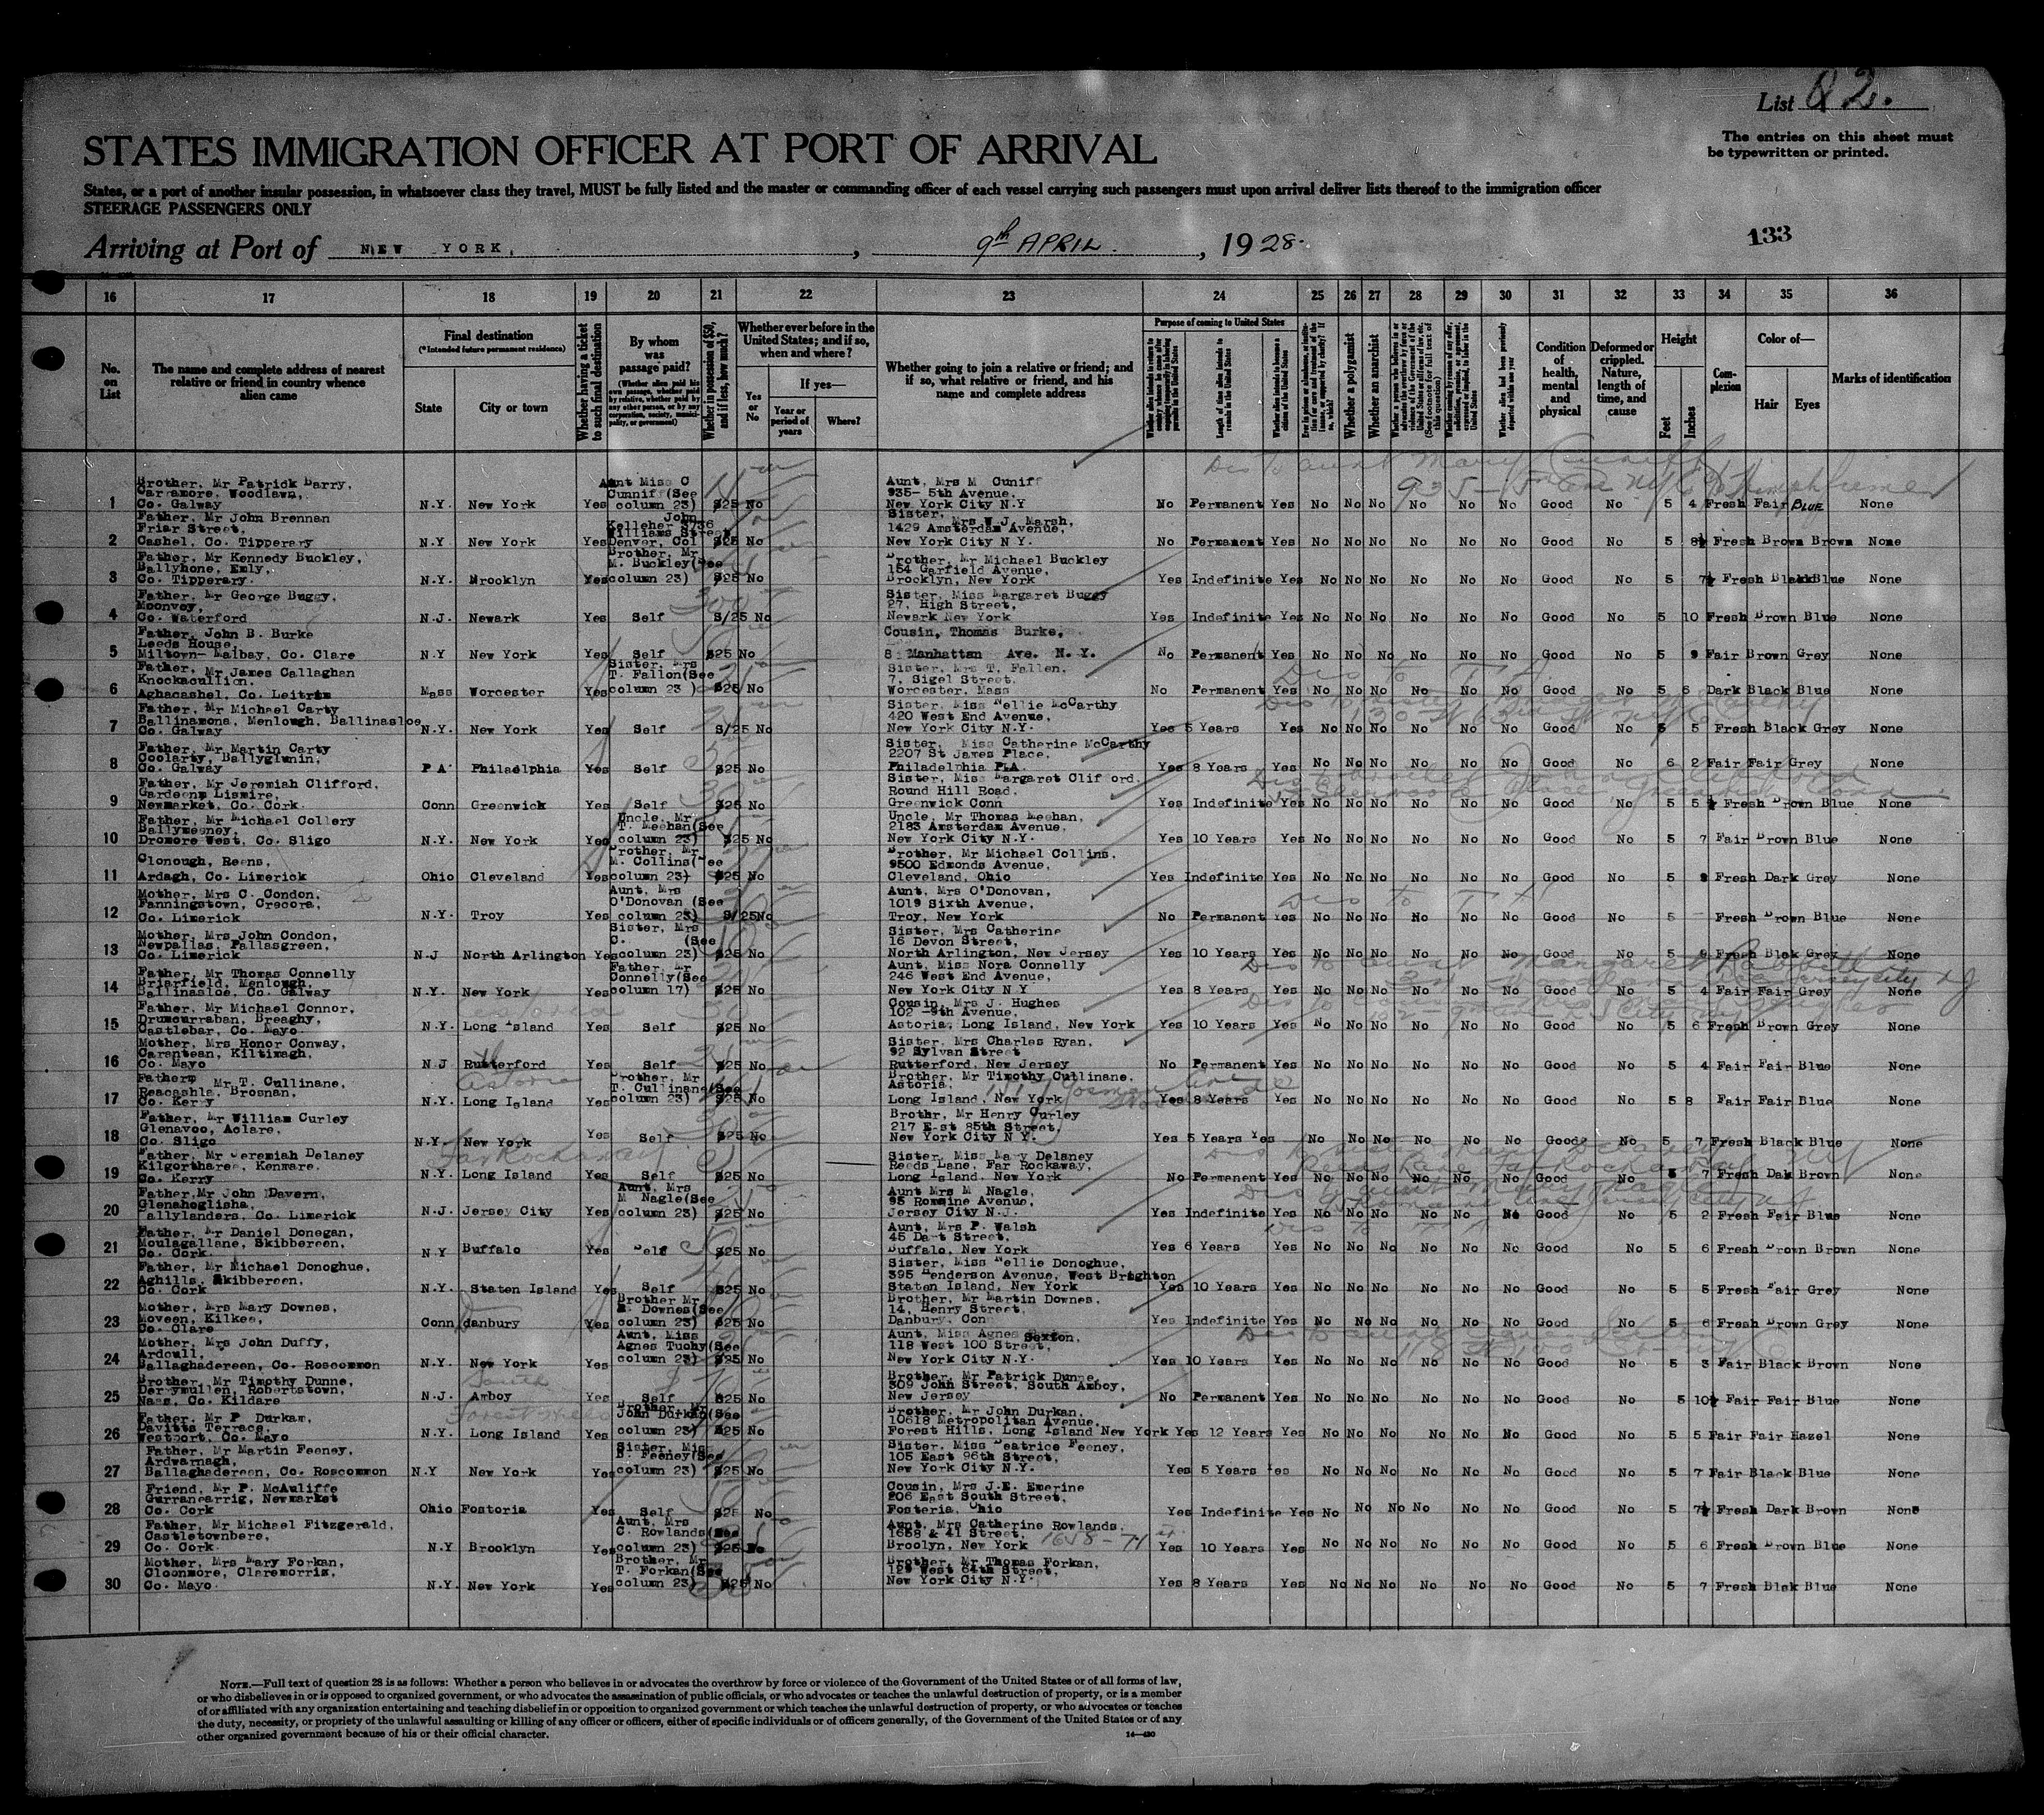 List 82.
The entries on this sheet must
be typewritten or printed.
STATES IMMIGRATION OFFICER AT PORT OF ARRIVAL
States, or a port of another insular possession, in whatsoever class they travel, MUST be fully listed and the master or commanding officer of each vessel carrying such passengers must upon arrival deliver lists thereof to the immigration officer
STEERAGE PASSENGERS ONLY
Arriving at Port of NEW YORK, 9th APRIL, 1928.
133
16 17 18 19 20 21 22 23 24 25 26 27 28 29 30 31 32 33 34 35 36
No. on List
The name and complete address of nearest relative or friend in country whence alien came
Final destination
(*Intended future permanent residence)
State
City or town
Whether having a ticket to such final destination
By whom was passage paid?
(Whether alien paid his own passage, whether paid by relative, whether paid by any other person, or by any corporation, society, municipality, or government)
Whether in possession of $50, and if less, how much?
Whether ever before in the United States; and if so, when and where?
Yes or No
If yes—
Year or period of years
Where?
Whether going to join a relative or friend; and if so, what relative or friend, and his name and complete address
Purpose of coming to United States
Length of time alien intends to remain in the United States
Whether alien intends to become a citizen of the United States
Whether a polygamist
Whether an anarchist
(See footnote for full text of this question)
Condition of health, mental and physical
Deformed or crippled. Nature, length of time, and cause
Height
Feet
Inches
Complexion
Color of—
Hair
Eyes
Marks of identification
1 Brother, Mr Patrick Barry, Carramore, Woodlawn, Co. Galway N.Y. New York Yes Aunt Miss C Cunniff (See column 23) $25 No Aunt, Mrs M Cuniff 935- 5th Avenue, New York City N.Y No Permanent Yes No No No No No No Good No 5 4 Fresh Fair Blue None
2 Father, Mr John Brennan Friar Street, Cashel, Co. Tipperary N.Y New York Yes John Kelleher 3736 Williams Street Denver, Col $25 No Sister, Mrs W.J. Marsh, 1429 Amsterdam Avenue, New York City N.Y. No Permanent Yes No No No No No No Good No 5 8½ Fresh Brown Brown None
3 Father, Mr Kennedy Buckley, Ballyhone, Emly, Co. Tipperary. N.Y. Brooklyn Yes Brother, Mr M. Buckley(See column 23) $25 No Brother, Mr Michael Buckley 154 Garfield Avenue, Brocklyn, New York Yes Indefinite Yes No No No No No No Good No 5 7½ Fresh Black Blue None
4 Father, Mr George Buggy, Moonvoy, Co. Waterford N.J. Newark Yes Self $/25 No Sister, Miss Margaret Buggy 27, High Street, Newark New York Yes Indefinite Yes No No No No No No Good No 5 10 Fresh Brown Blue None
5 Father, John B. Burke Leeds House, Miltown- Malbay, Co. Clare N.Y New York Yes Self $25 No Cousin, Thomas Burke, 8 Manhattan Ave. N.Y. No Permanent Yes No No No No No No Good No 5 9 Fair Brown Grey None
6 Father, Mr James Callaghan Knockacullion, Aghacashel, Co. Leitrim Mass Worcester Yes Sister, Mrs T. Fallon(See column 23 ) $25 No Sister, Mrs T. Fallen, 7, Sigel Street. Worcester, Mass No Permanent Yes No No No No No No Good No 5 6 Dark Black Blue None
7 Father, Mr Michael Carty Ballinamona, Menlough, Ballinasloe Co. Galway N.Y. New York Yes Self $/25 No Sister, Miss Nellie McCarthy 420 West End Avenue, New York City N.Y. Yes 5 Years Yes No No No No No No Good No 5 5 Fresh Black Grey None
8 Father, Mr Martin Carty Coolarty, Ballyglunin, Co. Galway PA Philadlphia Yes Self $25 No Sister, Miss Catherine McCarthy 2207 St James Place, Philadelphia PLA. Yes 8 Years Yes No No No No No No Good No 6 2 Fair Fair Grey None
9 Father, Mr Jeremiah Clifford, Gardeenm Lismire, Newmarket, Co. Cork. Conn Greenwick Yes Self $25 No Sister, Miss Margaret Clifford. Round Hill Road. Greenwick Conn Yes Indefinite Yes No No No No No No Good No 5 5½ Fresh Brown Blue None
10 Father, Mr Michael Collery Ballymeeney, Dromore West, Co. Sligo N.Y. New York Yes Uncle, Mr T. Meehan(See column 23) $25 No Uncle, Mr Thomas Meehan, 2183 Amsterdam Avenue, New York City N.Y. Yes 10 Years Yes No No No No No No Good No 5 7 Fair Brown Blue None
11 Clonough, Reens, Ardagh, Co. Limerick Ohio Cleveland Yes Brother, Mr M. Collins(See column 23) $25 No Brother, Mr Michael Collins, 9500 Edmonds Avenue, Cleveland, Ohio Yes Indefinite Yes No No No No No No Good No 5 Fresh Dark Grey None
12 Mother, Mrs C. Condon, Fanningstown, Crecora, Co. Limerick N.Y. Troy Yes Aunt, Mrs O'Donovan (See column 23) $/25 No Aunt, Mrs O'Donovan, 1019 Sixth Avenue, Troy, New York No Permanent Yes No No No No No No Good No 5 Fresh Brown Blue None
13 Mother, Mrs John Condon, Newpallas, Pallasgreen, Co. Limerick N.J North Arlington Yes Sister, Mrs C. (See column 23) $25 No Sister, Mrs Catherine 16 Devon Street, North Arlington, New Jersey Yes 10 Years Yes No No No No No No Good No 5 Fresh Blak Grey None
14 Father, Mr Thomas Connelly Briarfield, Menlough, Ballinasloe, Co. Galway N.Y. New York Yes Father, Mr Connelly(See column 17) $25 No Aunt, Miss Nora Connelly 246 West End Avenue, New York City N Y Yes 8 Years Yes No No No No No No Good No 5 4 Fair Fair Grey None
15 Father, Mr Michael Connor, Drumcurraban, Breaghy, Castlebar, Co. Mayo N.Y. Long Island Yes Self $25 No Cousin, Mrs J. Hughes 102 -9th Avenue, Astoria, Long Island, New York Yes 10 Years Yes No No No No No No Good No 5 6 Fresh Brown Grey None
16 Mother, Mrs Honor Conway, Carentean, Kiltimagh, Co. Mayo N.J Rutterford Yes Self $25 No Sister, Mrs Charles Ryan, 92 Sylvan Street Rutterford, New Jersey No Permanent Yes No No No No No No Good No 5 4 Fair Fair Blue None
17 Father, Mr T. Cullinane, Reacashla, Brosnan, Co. Kerry N.Y. Long Island Astoria Yes Brother, Mr T. Cullinane(See column 23) $25 No Brother, Mr Timothy Cullinane, Astoria, Long Island, New York Yes 8 Years Yes No No No No No No Good No 5 8 Fair Fair Blue None
18 Father, Mr William Curley Glenavoo, Aclare, Co. Sligo N.Y. New York Yes Self $25 No Brothr, Mr Henry Curley 217 E-st 85th Street, New York City N Y. Yes 5 Years Yes No No No No No No Good No 5 7 Fresh Black Blue None
19 Father, Mr Jeremiah Delaney Kilgortharee, Kenmare, Co. Kerry N.Y. Long Island Far Rockaway Yes Self $25 No Sister, Miss Mary Delaney Reeds Lane, Far Rockaway, Long Island, New York No Permanent Yes No No No No No No Good No 5 7 Fresh Dak Brown None
20 Father,Mr John Davern, Glenahoglisha, Tallylanders, Co. Limerick N.J. Jersey City Yes Aunt, Mrs M Nagle(See column 23) $25 No Aunt Mrs M Nagle, 95 Romaine Avenue, Jersey City N.J. Yes Indefinite Yes No No No No No No Good No 5 2 Fresh Fair Blue None
21 Father, Mr Daniel Donegan, Moulagallane, Skibbereen, Co. Cork. N.Y Buffalo Yes Self $25 No Aunt, Mrs P. Walsh 45 Dart Street, Buffalo, New York Yes 6 Years Yes No No No No No No Good No 5 6 Fresh Brown Brown None
22 Father, Mr Michael Donoghue, Aghills, Skibbereen, Co. Cork N.Y. Staten Island Yes Self $25 No Sister, Miss Nellie Donoghue, 395 Henderson Avenue, West Brighton Staten Island, New York Yes 10 Years Yes No No No No No No Good No 5 5 Fresh Fair Grey None
23 Mother, Mrs Mary Downes, Moveen, Kilkee, Co. Clare Conn danbury Yes Brother Mr M. Downes(See column 23) $25 No Brother, Mr Martin Downes, 14, Henry Street, Danbury, Con Yes Indefinite Yes No No No No No No Good No 5 6 Fresh Brown Grey None
24 Mother, Mrs John Duffy, Ardcull, Ballaghadereen, Co. Roscommon N.Y. New York Yes Aunt, Miss Agnes Tuohy(See column 23) $25 No Aunt, Miss Agnes Sexton, 118 West 100 Street, New York City N.Y. Yes 10 Years Yes No No No No No No Good No 5 3 Fair Black Brown None
25 Brother, Mr Timothy Dunne, Derrymullen, Robertstown, Naas, Co. Kildare N.J. South Amboy Yes Self $25 No Brother, Mr Patrick Dunne, 309 John Street, South Amboy, New Jersey No Permanent Yes No No No No No No Good No 5 10½ Fair Fair Blue None
26 Father, Mr P. Durkam, Davitts Terrace, Westport, Co. Mayo N.Y. Long Island Forest Hills Yes Brother, Mr John Durkan(See column 23) $25 No Brother, Mr John Durkan, 10618 Metropolitan Avenue, Forest Hills, Long Island New York Yes 12 Years Yes No No No No No No Good No 5 5 Fair Fair Hazel None
27 Father, Mr Martin Feeney, Ardwarnagh, Ballaghadereen, Co. Roscommon N.Y New York Yes Sister, Miss B. Feeney(See column 23) $25 No Sister, Miss Beatrice Feeney, 105 East 96th Street, New York City N.Y. Yes 5 Years Yes No No No No No No Good No 5 7 Fair Black Blue None
28 Friend, Mr P. McAuliffe Gurranearrig, Newmarket Co. Cork Ohio Fostoria Yes Self $25 No Cousin, Mrs J.E. Emerine 206 East South Street, Fosteria, Ohio Yes Indefinite Yes No No No No No No Good No 5 7½ Fresh Dark Brown None
29 Father, Mr Michael Fitzgerald, Castletownbere, Co. Cork. N.Y Brooklyn Yes Aunt, Mrs C. Rowlands(See column 23) $25 No Aunt, Mrs Catherine Rowlands, 1688 & 41 Street, Broolyn, New York 1658 - 71 st. Yes 10 Years Yes No No No No No No Good No 5 6 Fresh Brown Blue None
30 Mother, Mrs Mary Forkan, Cloonmore, Claremorris, Co. Mayo. N.Y. New York Yes Brother, Mr T. Forkan(See column 23) $25 No Brother, Mr Thomas Forkan, 129 West 64th Street, New York City N.Y. Yes 8 Years Yes No No No No No No Good No 5 7 Fresh Blak Blue None
NOTE.—Full text of question 28 is as follows: Whether a person who believes in or advocates the overthrow by force or violence of the Government of the United States or of all forms of law,
or who disbelieves in or is opposed to organized government, or who advocates the assassination of public officials, or who advocates or teaches the unlawful destruction of property, or is a member
of or affiliated with any organization entertaining and teaching disbelief in or opposition to organized government or which teaches the unlawful destruction of property, or who advocates or teaches
the duty, necessity, or propriety of the unlawful assaulting or killing of any officer or officers, either of specific individuals or of officers generally, of the Government of the United States or of any
other organized government because of his or their official character.
14—430